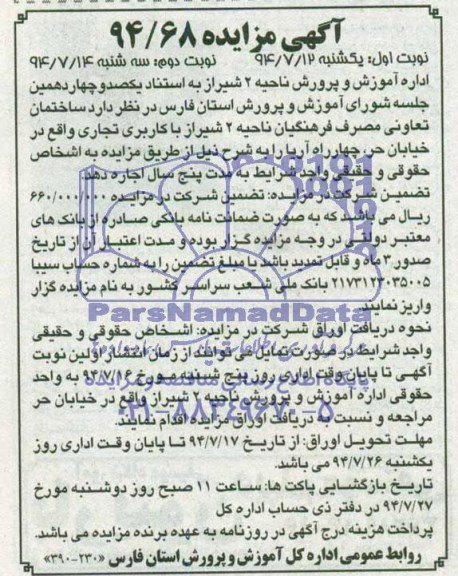 آگهی مزایده ۹۴/۶۸
نوبت اول: یکشنبه ۹۴/۷/۱۲ نوبت دوم: سه شنبه ۹۴/۷/۱۴
اداره آموزش و پرورش ناحیه ۲ شیراز به استناد یکصدو چهاردهمین
جلسه شورای آموزش و پرورش استان فارس در نظر دارد ساختمان
تعاونی مصرف فرهنگیان ناحیه ۲ شیراز با کاربری تجاری واقع در
خیابان حر، چهارراه آریا را به شرح ذیل از طریق مزایده به اشخاص
حقوقی و حقیقی واجد شرایط به مدت پنج سال اجاره دهد.
تضمین شرکت در مزایده: تضمین شرکت در مزایده ۶۶۰/۰۰۰/۰۰۰
ریال می باشد که به صورت ضمانت نامه بانکی صادره از بانک های
معتبر دولتی در وجه مزایده گزار بوده و مدت اعتبار آن از تاریخ
صدور ۳ ماه و قابل تمدید باشد یا مبلغ تضمین را به شماره حساب سیبا
۲۱۷۳۱۲۳۰۳۵۰۰۵ بانک ملی شعب سراسر کشور به نام مزایده گزار
واریز نمایند.
ParsNamadData
نحوه دریافت اوراق شرکت در مزایده: اشخاص حقوقی و حقیقی
واجد شرایط در صورت تمایل می توانند از زمان انتشار اولین نوبت
آگهی تا پایان وقت اداری روز پنج شنبه مورخ ۹۴/۷/۱۶ به واحد
پایگاه اطلاع رسانی مناقصه و مزایده
حقوقی اداره آموزش و پرورش ناحیه ۲ شیراز واقع در خیابان حر
۰۲۱-۸۸۳۴۹۶۷۰-۵
مراجعه و نسبت به دریافت اوراق مزایده اقدام نمایند.
مهلت تحویل اوراق: از تاریخ ۹۴/۷/۱۷ تا پایان وقت اداری روز
یکشنبه ۹۴/۷/۲۶ می باشد.
تاریخ بازگشایی پاکت ها: ساعت ۱۱ صبح روز دوشنبه مورخ
۹۴/۷/۲۷ در دفتر ذی حساب اداره کل
پرداخت هزینه درج آگهی در روزنامه به عهده برنده مزایده می باشد.
روابط عمومی اداره کل آموزش و پرورش استان فارس «۲۳۰-۳۹۰»